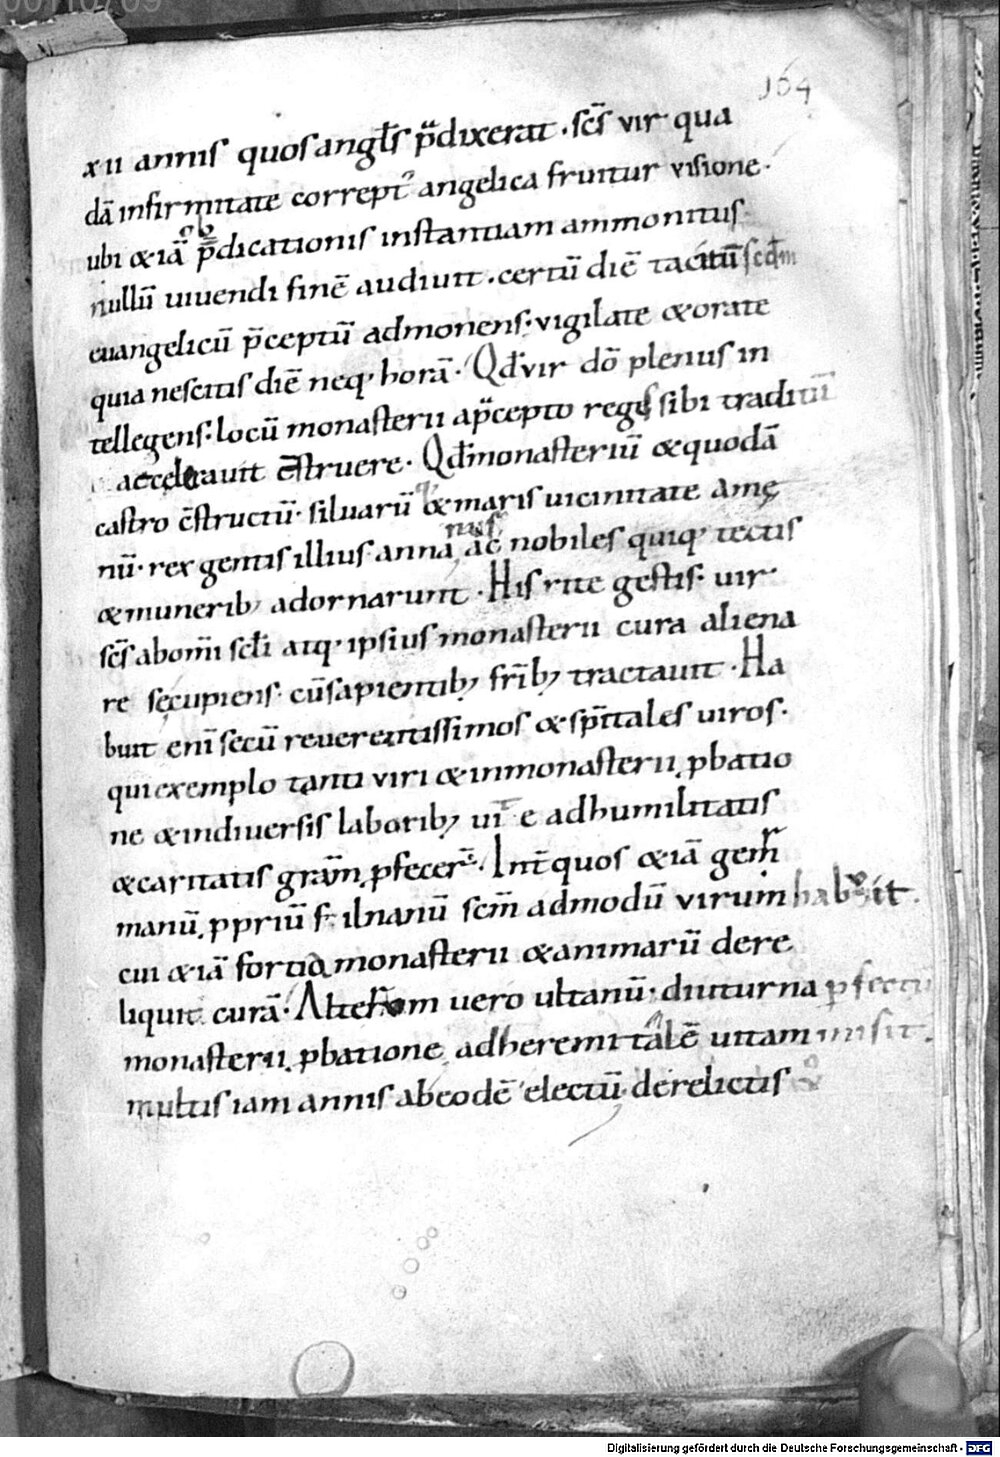 00110709
164
xii annis quos angłs p̄dixerat · sc̄s vir qua
dā infirmitate corrept᾽ angelica fruitur visione ·
ubi & iā p̄dicationis instantiam ammonitus
nullū uiuendi finē audiuit · certū diē tacitū scdm
euangelicū p̄ceptū admonens · vigilate & orate
quia nescitis diē neq· horā · Qd̄ vir dō plenus in
tellegens · locū monasterii a p̄cepto regis sibi traditū
accelerauit c̄struere · Qd̄ monasteriū & quodā
castro c̄structū · siluarū & maris uicinitate amę
nū · rex gentis illius anna nus ac nobiles quiq· tectis
& munerib; adornarunt · His rite gestis · uir
sc̄s ab om̄i scłi atq· ipsius monasterii cura aliena
re se cupiens · cū sapientib; fr̄ib; tractauit · Ha
buit enī secū reuerentissimos & sp̄itales uiros ·
qui exemplo tanti viri & in monasterii pbatio
ne & in diuersis laborib; e ad humilitatis
& caritatis grām pfecer̄ · Int̄ quos & iā germ̄
manū ppriū f̄ ilnanū scm̄ admodū virum habuit ·
cui & iā fortia monasterii & animarū dere
liquit curā · Alterum uero ultanū · diuturna pfectū
monasterii pbatione ad heremitalē uitam misit ·
multis iam annis ab eodē electū derelictis
Digitalisierung gefördert durch die Deutsche Forschungsgemeinschaft - DFG